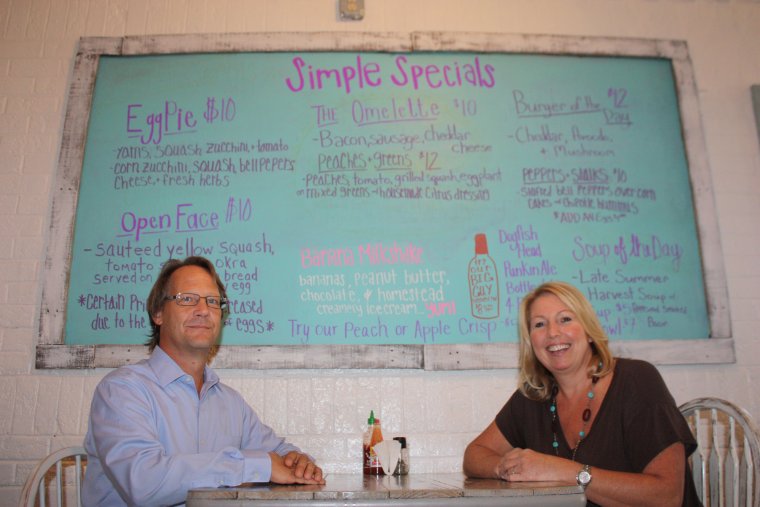 Simple Specials
Egg Pie $10
- Yams, Squash, Zucchini, + tomato
- corn, zucchini, squash, bell pepers
Cheese, + fresh herbs
Open Face $10
- Sauteed yellow squash,
tomato okra
served on bread
egg
*Certain
due to the of eggs*
The Omelette $10
- Bacon, sausage, cheddar
cheese
Peaches + greens $12
- Peaches, tomato, grilled squash, eggplant
on mixed greens w/ housemade citrus dressing
Banana Milkshake
bananas, peanut butter,
chocolate, + homestead
creamery icecream... yum
Try our Peach or Apple Crisp $
try our
BIG
GUY
Dogfish
Head
Punkin Ale
Bottle
Burger of the Day $12
- Cheddar, Avocado, +
Mushroom
Peppers + Stalks $10
Stuffed bell Peppers over corn
cakes w/ Chipotle hummus
*ADD AN EGG
Soup of the Day
- Late Summer
Harvest Soup